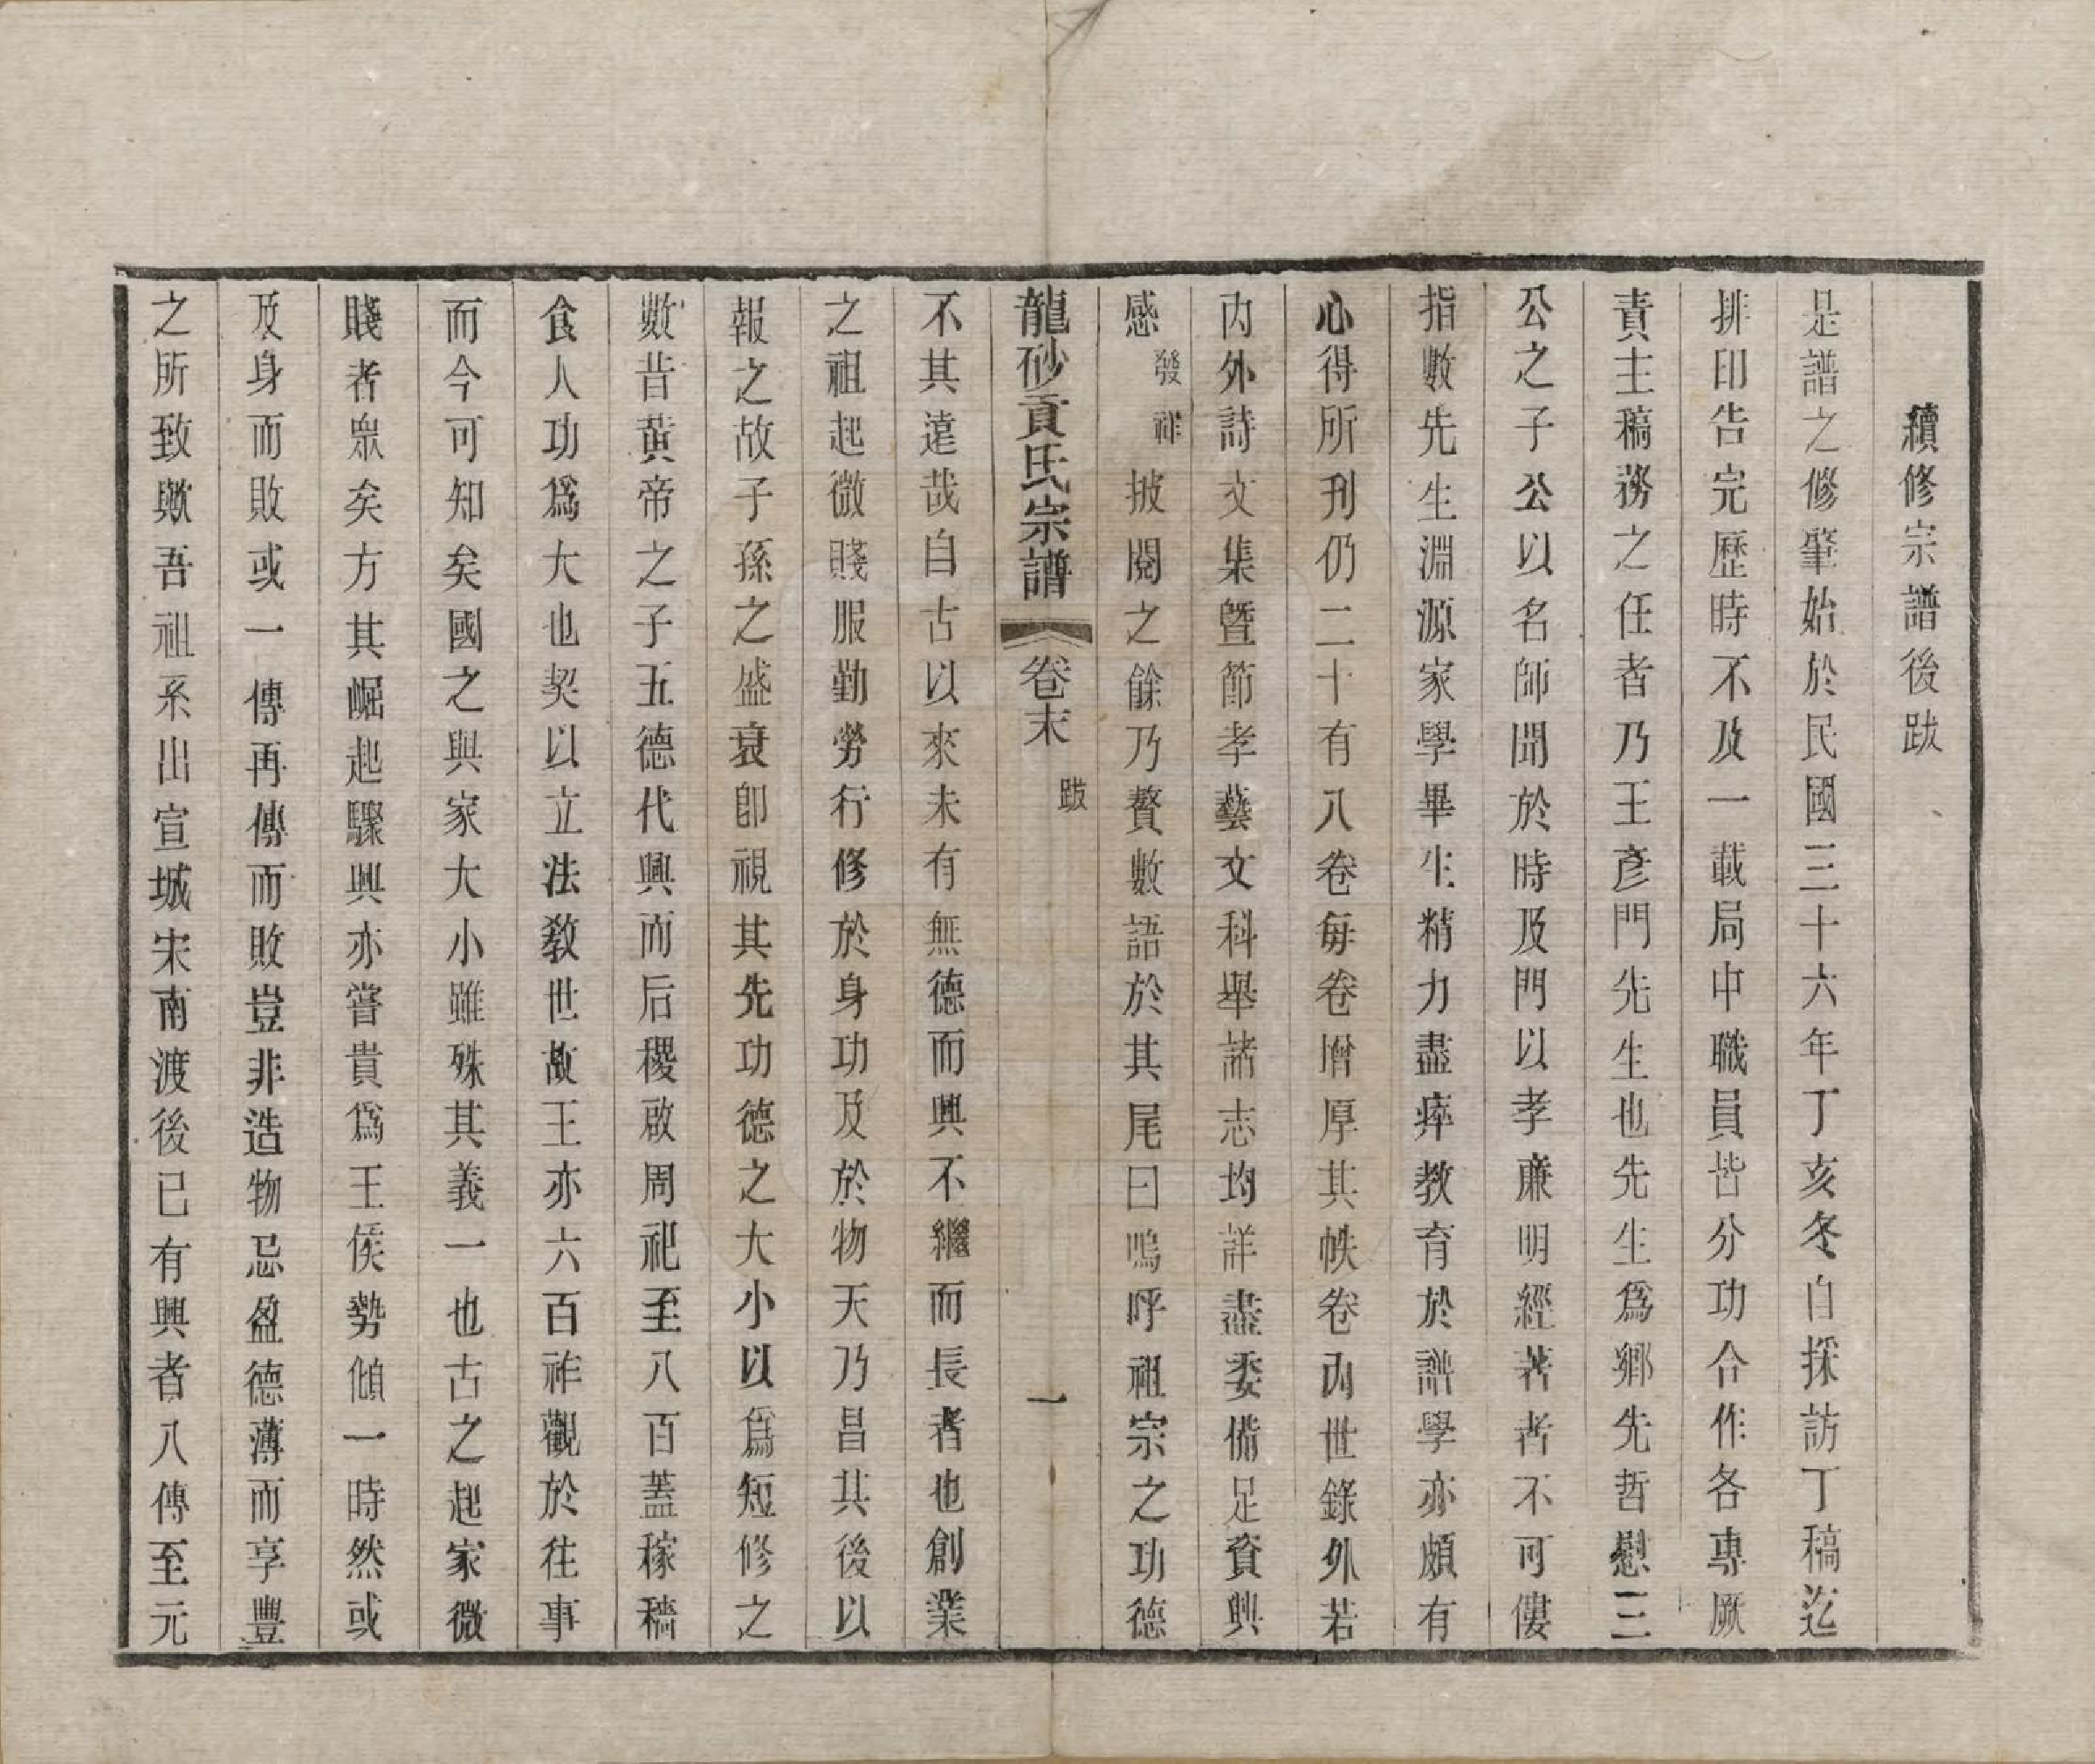 續修宗譜後跋
是譜之修肇始於民國三十六年丁亥冬自採訪丁稿迄
排印告完歷時不及一載局中職員皆分功合作各專厥
責主稿務之任者乃王彥門先生也先生爲鄉先哲慰三
公之子公以名師聞於時及門以孝廉明經著者不可僂
指數先生淵源家學畢生精力盡瘁教育於譜學亦頗有
心得所刊仍二十有八卷每卷增厚其帙卷內世錄外若
內外詩文集曁節孝藝文科舉諸志均詳盡委備足資興
感發祥披閱之餘乃贅數語於其尾曰嗚呼祖宗之功德
龍砂貢氏宗譜 卷末 跋 一
不其遠哉自古以來未有無德而興不繼而長者也創業
之祖起微賤服勤勞行修於身功及於物天乃昌其後以
報之故子孫之盛衰卽視其先功德之大小以爲短修之
數昔黃帝之子五德代興而后稷啟周祀至八百蓋稼穡
食人功爲大也契以立法敎世故王亦六百祚觀於往事
而今可知矣國之與家大小雖殊其義一也古之起家微
賤者眾矣方其崛起驟興亦嘗貴爲王侯勢傾一時然或
及身而敗或一傳再傳而敗豈非造物忌盈德薄而享豐
之所致歟吾祖系出宣城宋南渡後已有興者八傳至元